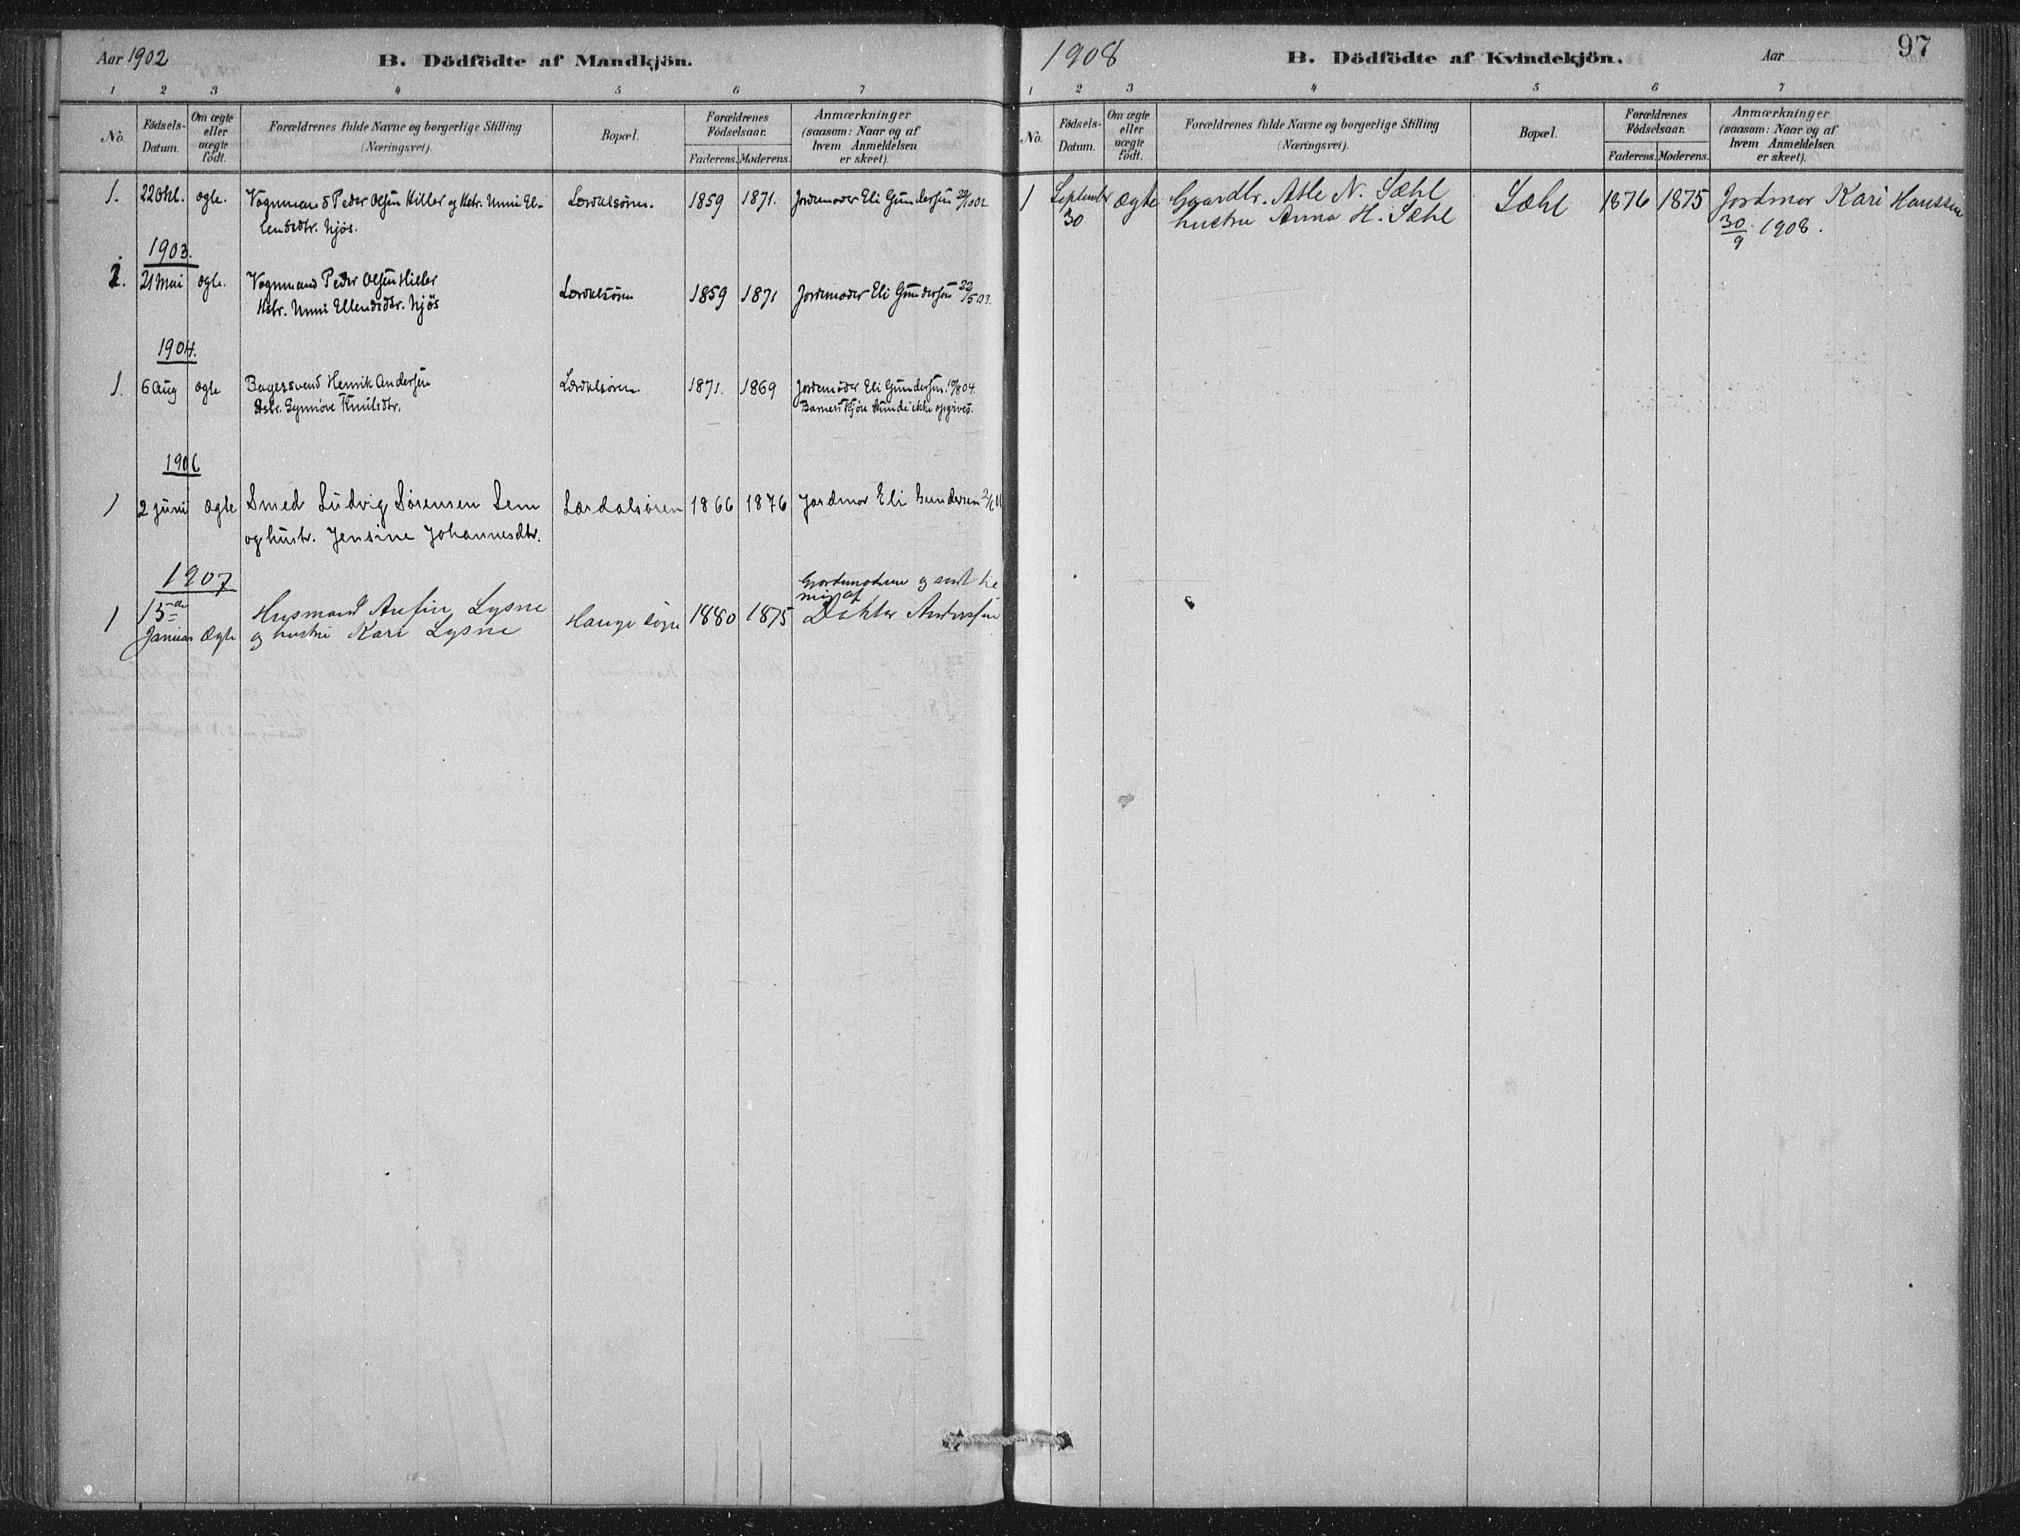 Aar 1902
B. Dödfödte af Mandkjön.
1 2 3 4 5 6 7
No.
Födsels-
Datum.
Om ægte
eller
uægte
födt.
Forældrenes fulde Navne og borgerlige Stilling
(Næringsvei).
Bopæl.
Forældrenes
Födselsaar.
Faderens. Moderens.
Anmærkninger
(saasom: Naar og af
hvem Anmeldelsen
er skeet).
1. 22 Okt. ægte. Vognmand Peder Olsen Hiller og Hstr. Unni El- Lærdalsøren. 1859 1871. Jordemoder Eli Gundersen 22/10 02
lendsdtr. Njøs.
1903.
1. 21 Mai ægte. Vognmand Peder Olsen Hiller
Hstr. Unni Ellendsdtr. Njøs Lærdalsøren 1859 1871 Jordemoder Eli Gundersen 22/5 03.
1904.
1. 6 Aug ægte Bagersvend Henrik Andersen Lærdalsøren. 1871. 1869 Jordemoder Eli Gundersen 10/8 04.
Hstr. Synnøve Knutsdtr. Barnets Kjøn kunde ikke opgives.
1906
1 2 juni Ægte Smed Ludvig Sørensen Sem Lærdalsøren 1866 1876 Jordmor Eli Gundersen
og hustr. Jensine Johannesdtr.
1907
1 15de Januar Ægte Husmand Anfin Lysne Hauge sogn 1880 1875 Gjordemoderen og
og hustru Kari Lysne Doktor Anderssen
1908
B. Dödfödte af Kvindekjön.
Aar
97
1 2 3 4 5 6 7
No.
Födsels-
Datum.
Om ægte
eller
uægte
födt.
Forældrenes fulde Navne og borgerlige Stilling
(Næringsvei).
Bopæl.
Forældrenes
Födselsaar.
Faderens. Moderens.
Anmærkninger
(saasom: Naar og af
hvem Anmeldelsen
er skeet).
1 September Ægte Gaardbr. Asle N. Sæhl Sæhl 1876 1875 Jordmor Kari Hanssen
30 hustru Anna H. Sæhl 30/9 1908.